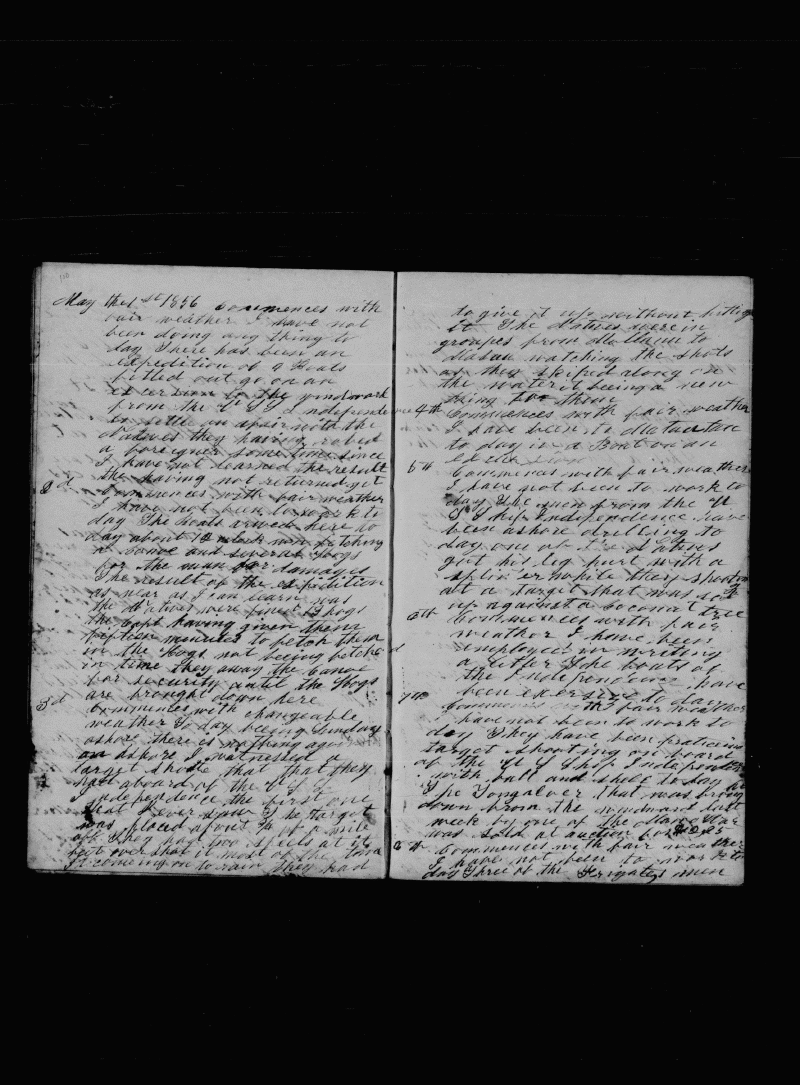 May the 1st 1856 commences with
fair weather I have not
been doing any thing to
day There has been an
expedition of 9 Boats
fitted out go on an
to the windward
from the U S S Independence
to settle an afair with the
Natives they having robed
a foreigner some time since
I have not learned the result
the having not returned yet
2d commences with fair weather
I have not been to work to
day The boats arived here to
day about 12 oclock noon fetching
a canoe and several Hogs
for the man for damages
The result of the expidition
as near as I can learn was
the Natives were fined 15 hogs
the capt having given them
fifteen minutes to fetch them
in the Hogs not beeing fetched
in time they away the canoe
for security until the Hogs
are brought down here
3d Commences with changeable
weather To day beeing Sunday
ashore there is nothing going
on ashore I witnessed a
target shoote that that they
had aboard of the U S S
Independence the first one
that I ever saw The target
was placed about 3/4 of a mile
off They had two spells at it
but over shot it most of the time
It comeing on to rain they had
to give it up without hitting
it The Natives were in
groupes from to
watching the shots
as they skiped along on
the water it beeing a new
thing to them
4th Commences with fair weather
I have been to
to day in a Boat on an
5th Commences with fair weather
I have not been to work to
day The men from the U
S Ship Independence have
been ashore drilling to
day one of the Natives
got his leg hurt with a
splinter while they shooting
at a target that was set
up against a Coconut tree
6th Commences with fair
weather I have been
employed in writing
a letter The boats of
the Independence have
been exersize to day
7th Commences with fair weather
I have not been to work to
day They have been practicing
target shooting on board
of the U S Ship Independence
with ball and shell to day
The that was brong
down from the windward last
week by one of the Man of War
was sold at auction for
8th Commences with fair weather
I have not been to work to
day Three of the Frigates men